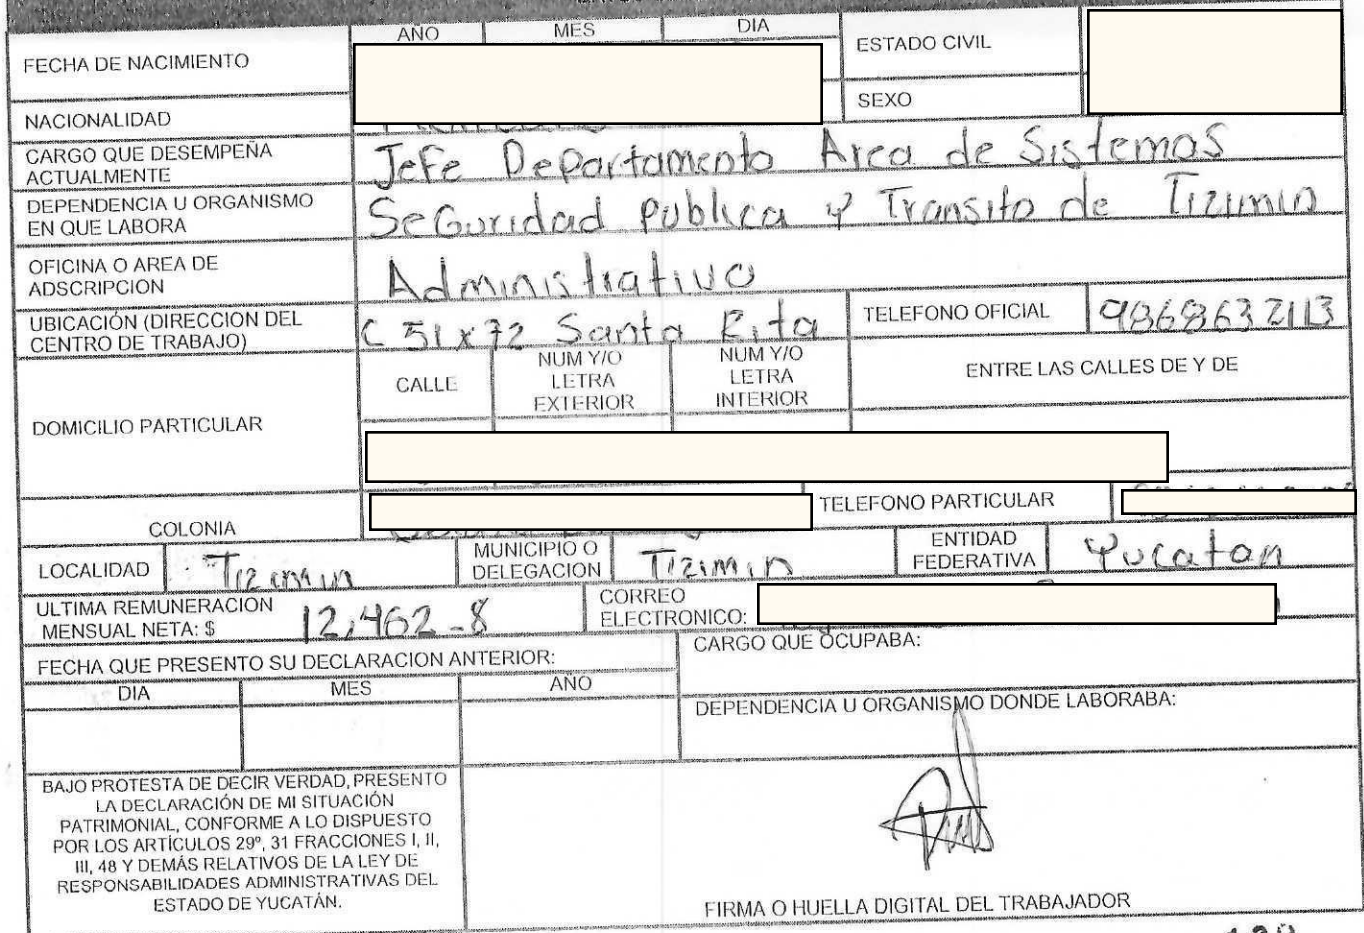 AÑO MES DIA
FECHA DE NACIMIENTO
ESTADO CIVIL
NACIONALIDAD
SEXO
CARGO QUE DESEMPEÑA
ACTUALMENTE
Jefe Departamento Area de Sistemas
DEPENDENCIA U ORGANISMO
EN QUE LABORA
Seguridad publica y Transito de Tizimin
OFICINA O AREA DE
ADSCRIPCION
Administrativo
UBICACIÓN (DIRECCION DEL
CENTRO DE TRABAJO)
C 51 x 72 Santa Rita
TELEFONO OFICIAL
9868632113
DOMICILIO PARTICULAR
CALLE
NUM Y/O
LETRA
EXTERIOR
NUM Y/O
LETRA
INTERIOR
ENTRE LAS CALLES DE Y DE
COLONIA
TELEFONO PARTICULAR
LOCALIDAD
Tizimin
MUNICIPIO O
DELEGACION
Tizimin
ENTIDAD
FEDERATIVA
Yucatan
ULTIMA REMUNERACION
MENSUAL NETA: $
12,462-8
CORREO
ELECTRONICO:
FECHA QUE PRESENTO SU DECLARACION ANTERIOR:
CARGO QUE OCUPABA:
DIA MES AÑO
DEPENDENCIA U ORGANISMO DONDE LABORABA:
BAJO PROTESTA DE DECIR VERDAD, PRESENTO
LA DECLARACIÓN DE MI SITUACIÓN
PATRIMONIAL, CONFORME A LO DISPUESTO
POR LOS ARTÍCULOS 29º, 31 FRACCIONES I, II,
III, 48 Y DEMÁS RELATIVOS DE LA LEY DE
RESPONSABILIDADES ADMINISTRATIVAS DEL
ESTADO DE YUCATÁN.
FIRMA O HUELLA DIGITAL DEL TRABAJADOR